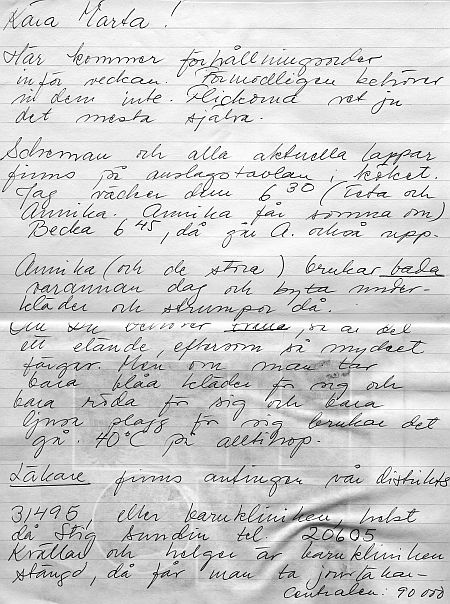 Kära Marta!
Här kommer förhållningsorder
inför veckan. Förmodligen behöver
ni dem inte. Flickorna vet ju
det mesta själva.
Scheman och alla aktuella lappar
finns på anslagstavlan i köket.
Jag väcker dem 6 30 (Teta och
Annika. Annika får somna om)
Becka 6 45, då går A. också upp.
Annika (och de stora) brukar bada
varannan dag och byta under-
kläder och strumpor då.
Om Du behöver tvätta, så är det
ett elände, eftersom så mycket
färgar. Men om man tar
bara blåa kläder för sig och
bara röda för sig och bara
ljusa plagg för sig brukar det
gå. 40°C på alltihop.
Läkare finns antingen vår distrikts
31495, eller barnkliniken, helst
då Stig Sundin tel. 20605
Kvällar och helger är barnkliniken
stängd, då får man ta jourläkar-
centralen: 90 000